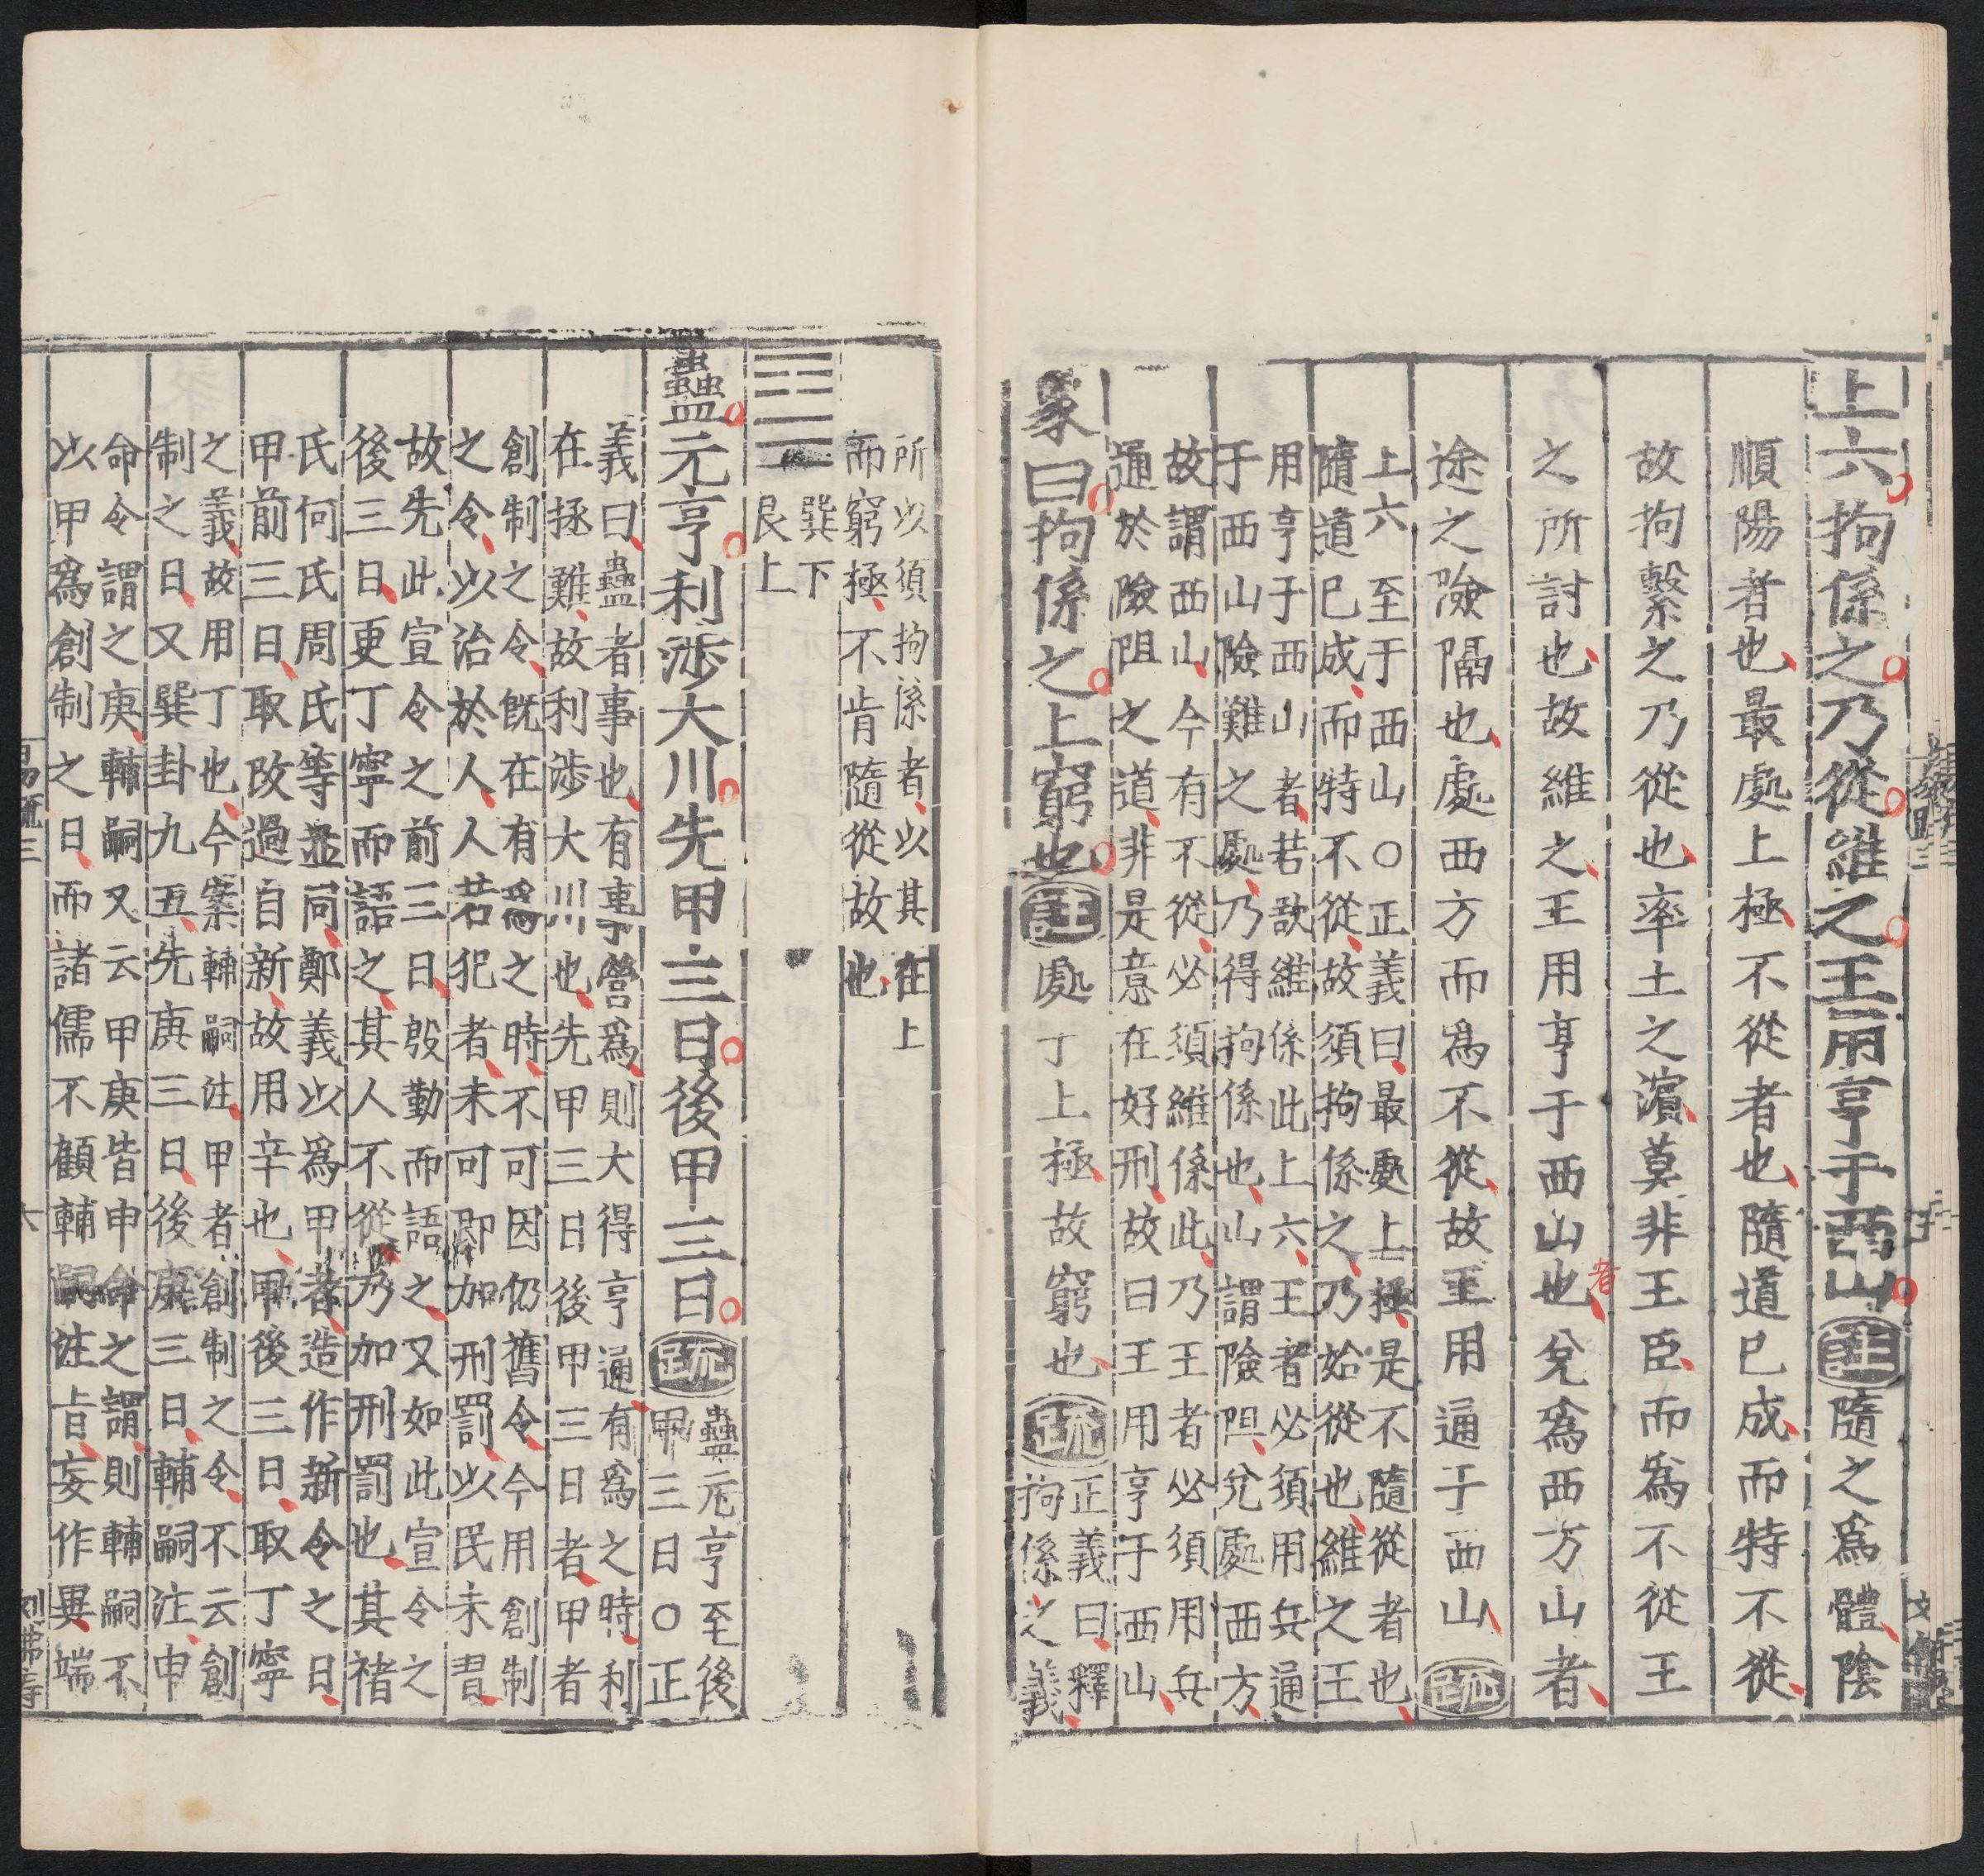 上六拘係之乃從維之王用亨于西山注隨之爲體陰
順陽者也最處上極不從者也隨道已成而特不從
故拘繫之乃從也率土之濱莫非王臣而爲不從王
之所討也故維之王用亨于西山也兌爲西方山者
者
途之險隔也處西方而爲不從故王用通于西山疏
上六至于西山○正義曰最處上極是不隨從者也
隨道已成而特不從故須拘係之乃始從也維之王
用亨于西山者若欲維係此上六王者必須用兵通
于西山險難之處乃得拘係也山謂險阻兌處西方
故謂西山今有不從必須維係此乃王者必須用兵
通於險阻之道非是意在好刑故曰王用亨于西山
象曰拘係之上窮也注處于上極故窮也疏正義曰釋
拘係之義
所以須拘係者以其在上
而窮極不肯隨從故也
巽下
艮上
蠱元亨利涉大川先甲三日後甲三日疏蠱元亨至後
甲三日○正
義曰蠱者事也有事營爲則大得亨通有爲之時利
在拯難故利涉大川也先甲三日後甲三日者甲者
創制之令旣在有爲之時不可因仍舊令今用創制
之令以治於人人若犯者未可即加刑罰以民未習
故先此宣令之前三日殷勤而語之又如此宣令之
後三日更丁寧而語之其人不從乃加刑罰也其褚
氏何氏周氏等並同鄭義以爲甲者造作新令之日
甲前三日取改過自新故用辛也甲後三日取丁寧
之義故用丁也今案輔嗣注甲者創制之令不云創
制之日又巽卦九五先庚三日後庚三日輔嗣注申
命令謂之庚輔嗣又云甲庚皆申命之謂則輔嗣不
以甲爲創制之日而諸儒不顧輔嗣注旨妄作異端
易疏三
六